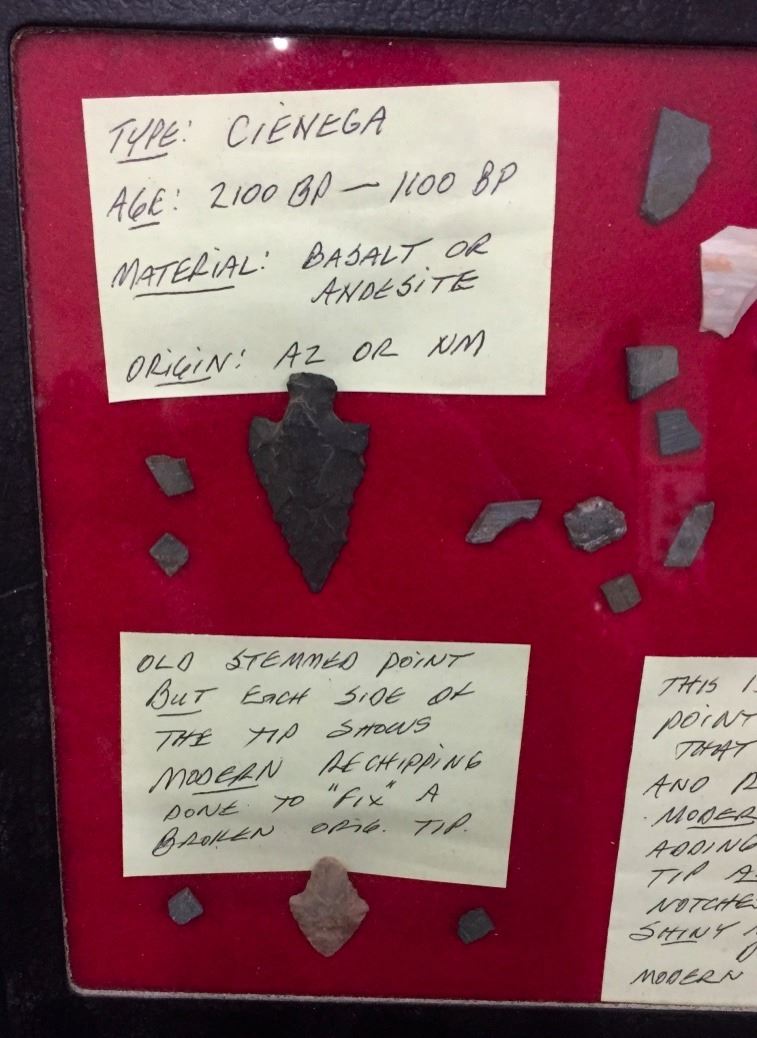 TYPE: CIENEGA
AGE: 2100 BP — 1100 BP
MATERIAL: BASALT OR
ANDESITE
ORIGIN: AZ OR NM
OLD STEMMED POINT
BUT EACH SIDE OF
THE TIP SHOWS
MODERN RECHIPPING
DONE TO "FIX" A
BROKEN ORIG. TIP.
THIS
POINT
THAT
AND
ADDING
TIP
SHINY
MODERN